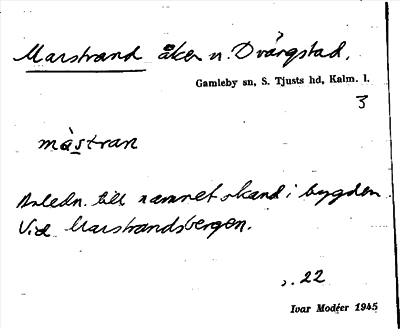 Marstrand åker n. Dvärgstad.
Gamleby sn, S. Tjusts hd, Kalm. l.
3
màstran
Anledn. till namnet okänd i bygden
Vid Marstrandsbergen.
s. 22
Ivar Modéer 1945